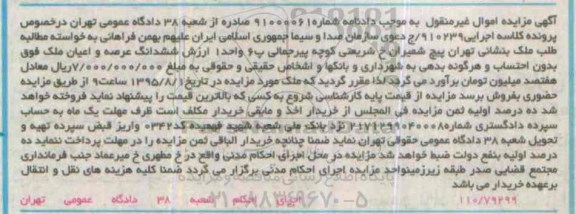 آگهی مزایده اموال غیرمنقول به موجب دادنامه شماره ۹۱۰۰۰۰۶۱ صادره از شعبه ۳۸ دادگاه عمومی تهران درخصوص
پرونده کلاسه اجرایی ۹۱۰۲۳۹/ج دعوی سازمان صدا و سیما جمهوری اسلامی ایران علیه بهمن فراهانی به خواسته مطالبه
طلب ملک بنشانی تهران پیچ شمیران خ شریعتی کوچه پیرجمالی پ۶ واحد۱ ارزش ششدانگ عرصه و اعیان ملک فوق
بدون احتساب و هرگونه بدهی به شهرداری و بانکها و اشخاص حقیقی و حقوقی به مبلغ ۷/۰۰۰/۰۰۰/۰۰۰ریال معادل
هفتصد میلیون تومان برآورد می گردد لذا مقرر گردید که ملک مورد مزایده در تاریخ ۱۳۹۵/۸/۱ ساعت۹ از طریق مزایده
حضوری بفروش برسد مزایده از قیمت پایه کارشناسی شروع به کسی که بالاترین قیمت را پیشنهاد نماید فروخته خواهد
شد ده درصد اولیه ثمن مزایده فی المجلس از خریدار اخذ و مابقی خریدار مکلف است ظرف مهلت یک ماه به حساب
سپرده دادگستری شماره نزد بانک ملی شعبه کد۳۴۲ واریز قبض سپرده تهیه و
تحویل شعبه ۳۸ دادگاه عمومی حقوقی تهران نماید ضمنا چنانچه خریدار الباقی ثمن مزایده را در مهلت پرداخت ننماید ده
درصد اولیه بنفع دولت ضبط خواهد شد مزایده در محل اجرای احکام مدنی واقع در خ مطهری خ میرعماد جنب فرمانداری
مجتمع قضایی صدر طبقه زیرزمین واحد مزایده اجرای احکام مدنی برگزار می گردد ضمنا کلیه هزینه های نقل و انتقال
برعهده خریدار می باشد
۱۱۰/۷۹۲۹۹ اجرای احکام شعبه ۳۸ دادگاه عمومی تهران